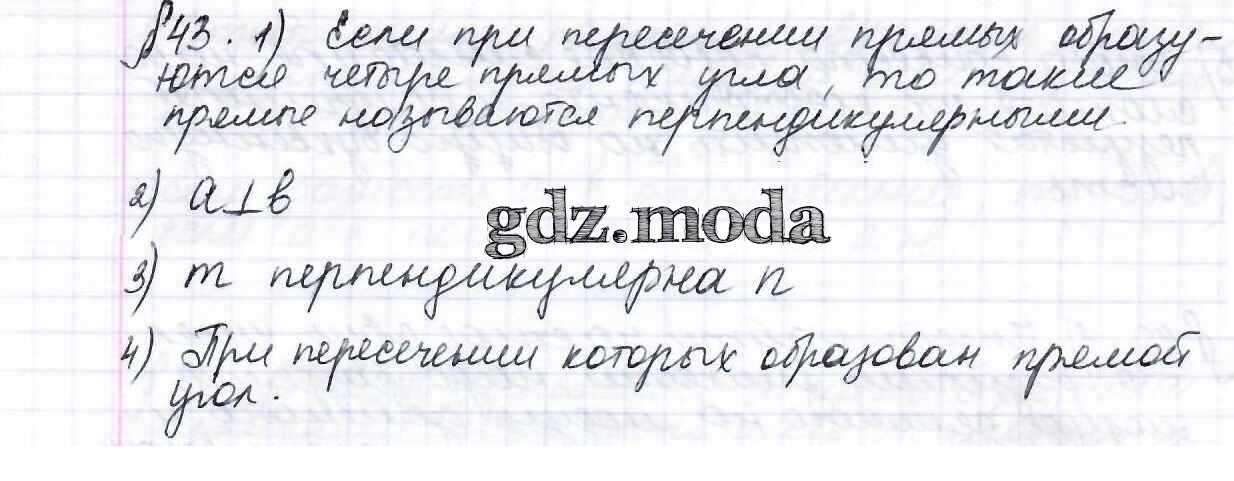 §43. 1) Если при пересечении прямых образу-
ются четыре прямых угла, то такие
прямые называются перпендикулярными.
2) a⊥b
gdz.moda
3) m перпендикулярна n
4) При пересечении которых образован прямой
угол.